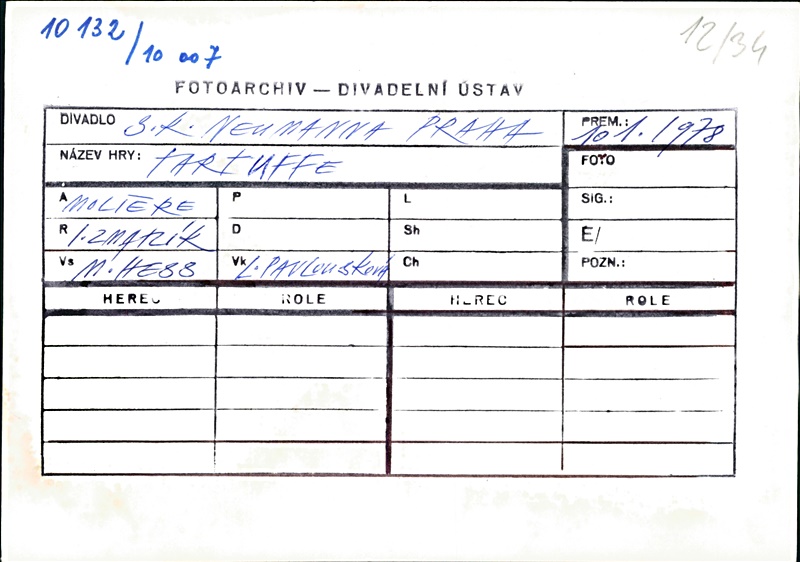 10 132/10 007
12/34
FOTOARCHIV — DIVADELNÍ ÚSTAV
DIVADLO S.K. NEUMANNA PRAHA
PREM.: 10.1.1978
NÁZEV HRY: TARTUFFE
FOTO
A MOLIÈRE P L SIG.:
R I. ZMATLÍK D Sh Č/
Vs M. HESS Vk L. PAVLOUSKOVÁ Ch POZN.:
HEREC ROLE HEREC ROLE